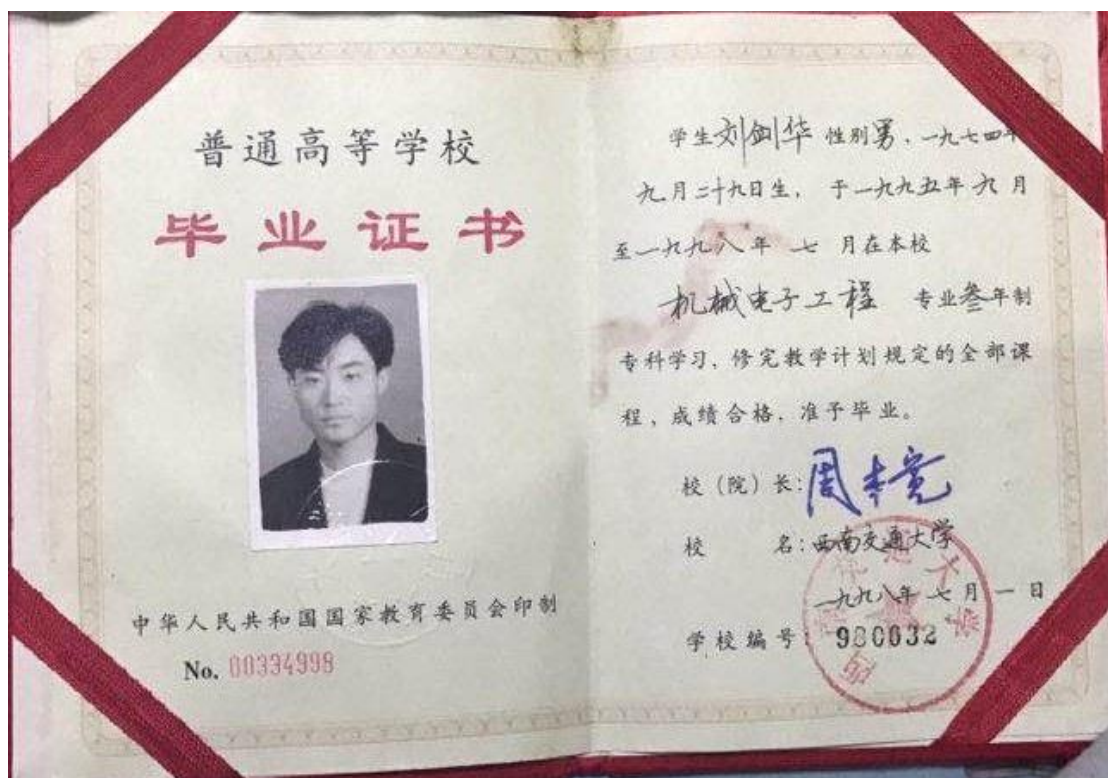 普通高等学校
毕业证书
中华人民共和国国家教育委员会印制
No. 00334998
学生刘剑华 性别男，一九七四年
九月二十九日生，于一九九五年九月
至一九九八年 七 月在本校
机械电子工程 专业叁年制
专科学习，修完教学计划规定的全部课
程，成绩合格，准予毕业。
校（院）长：周本宽
校 名：西南交通大学
一九九八年七月一日
学校编号：980032
西南交通大学